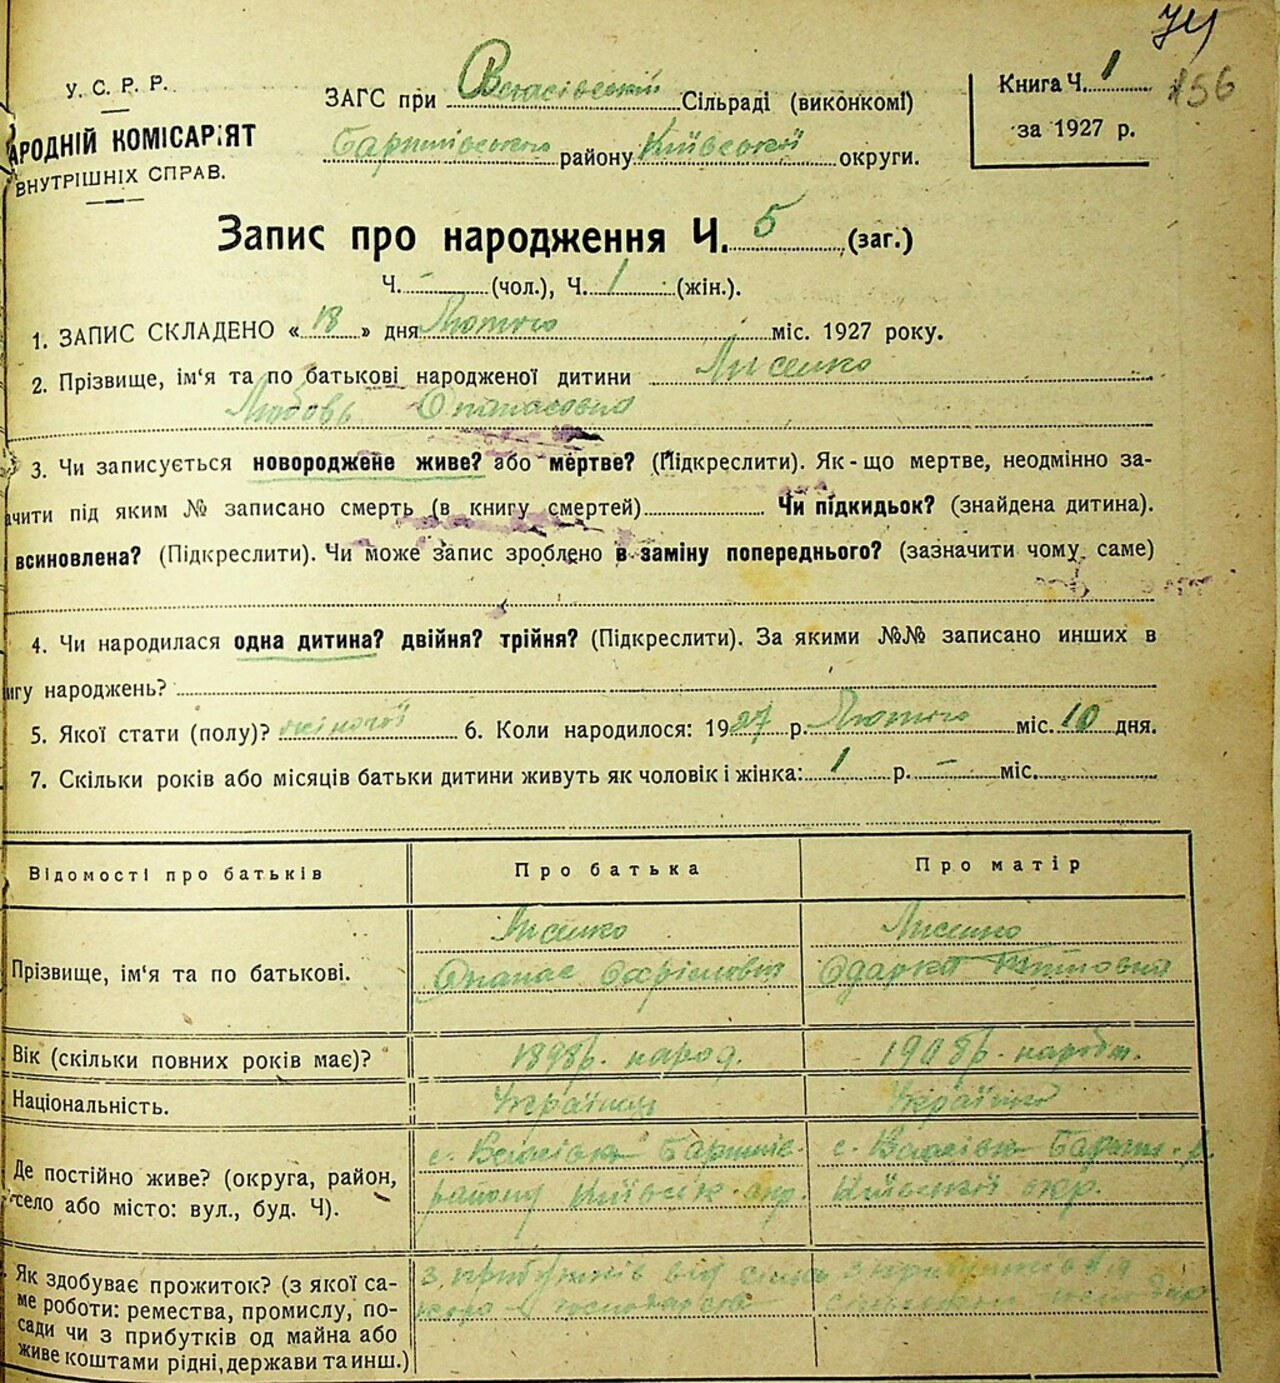 74
156
У. С. Р. Р.
АРОДНІЙ КОМІСАРІЯТ
ВНУТРІШНІХ СПРАВ.
ЗАГС при Власівській Сільраді (виконкомі)
Баришівського району Київської округи.
Книга Ч. 1
за 1927 р.
Запис про народження Ч. 5 (заг.)
Ч. - (чол.), Ч. 1 (жін.).
1. ЗАПИС СКЛАДЕНО «18» дня Лютого міс. 1927 року.
2. Прізвище, ім'я та по батькові народженої дитини Лисенко
Любовь Опанасовна
3. Чи записується новороджене живе? або мертве? (Підкреслити). Як-що мертве, неодмінно за-
ачити під яким № записано смерть (в книгу смертей) Чи підкидьок? (знайдена дитина).
всиновлена? (Підкреслити). Чи може запис зроблено в заміну попереднього? (зазначити чому саме)
4. Чи народилася одна дитина? двійня? трійня? (Підкреслити). За якими №№ записано инших в
игу народжень?
5. Якої стати (полу)? жіночої 6. Коли народилося: 1927 р. Лютого міс. 10 дня.
7. Скільки років або місяців батьки дитини живуть як чоловік і жінка: 1 р. - міс.
Відомості про батьків Про батька Про матір
Прізвище, ім'я та по батькові.
Лисенко
Опанас
Лисенко
Одарка
Вік (скільки повних років має)? 1898 р. народ. 1908 р. народж.
Національність. Українець Українка
Де постійно живе? (округа, район,
село або місто: вул., буд. Ч).
с. Власівка Баришів.
району Київськ. окр.
с. Власівка Бариш. р.
Київської окр.
Як здобуває прожиток? (з якої са-
ме роботи: ремества, промислу, по-
сади чи з прибутків од майна або
живе коштами рідні, держави та инш.)
з прибутків від
господарства
з прибутків